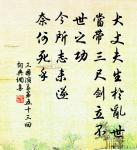 大丈夫生於亂世
當帶三尺劍立不
世之功
今所志未遂
奈何死乎
三國演義第五十三回
詞典網集